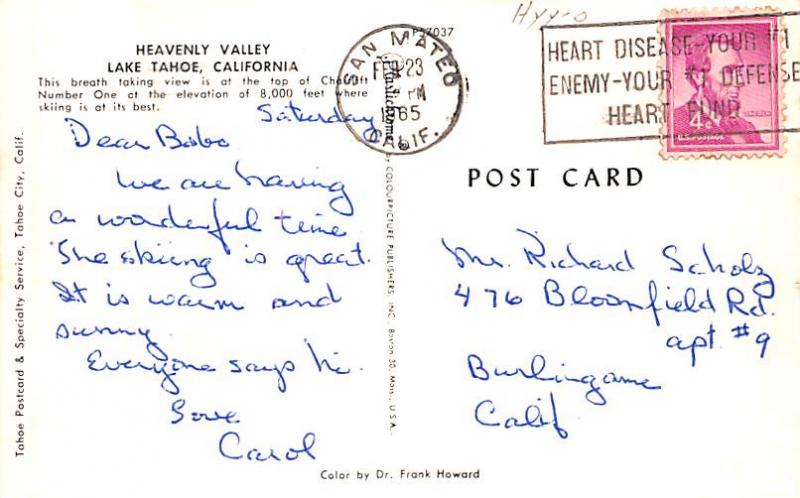 HEAVENLY VALLEY
LAKE TAHOE, CALIFORNIA
This breath taking view is at the top of Chairlift
Number One at the elevation of 8,000 feet where
skiing is at its best.
Saturday
Dear Bobo
We are having
a wonderful time
The skiing is great.
It is warm and
sunny.
Everyone says hi.
Love
Carol
Tahoe Postcard & Specialty Service, Tahoe City, Calif.
by COLOURPICTURE PUBLISHERS, INC., Boston 30, Mass., U.S.A.
P47037
SAN MATEO
FEB 23
PM
1965
CALIF.
HEART DISEASE-YOUR #1
ENEMY-YOUR #1 DEFENSE
HEART FUND
4¢
POST CARD
Mr. Richard Scholz
476 Bloomfield Rd.
apt. #9
Burlingame
Calif
Color by Dr. Frank Howard